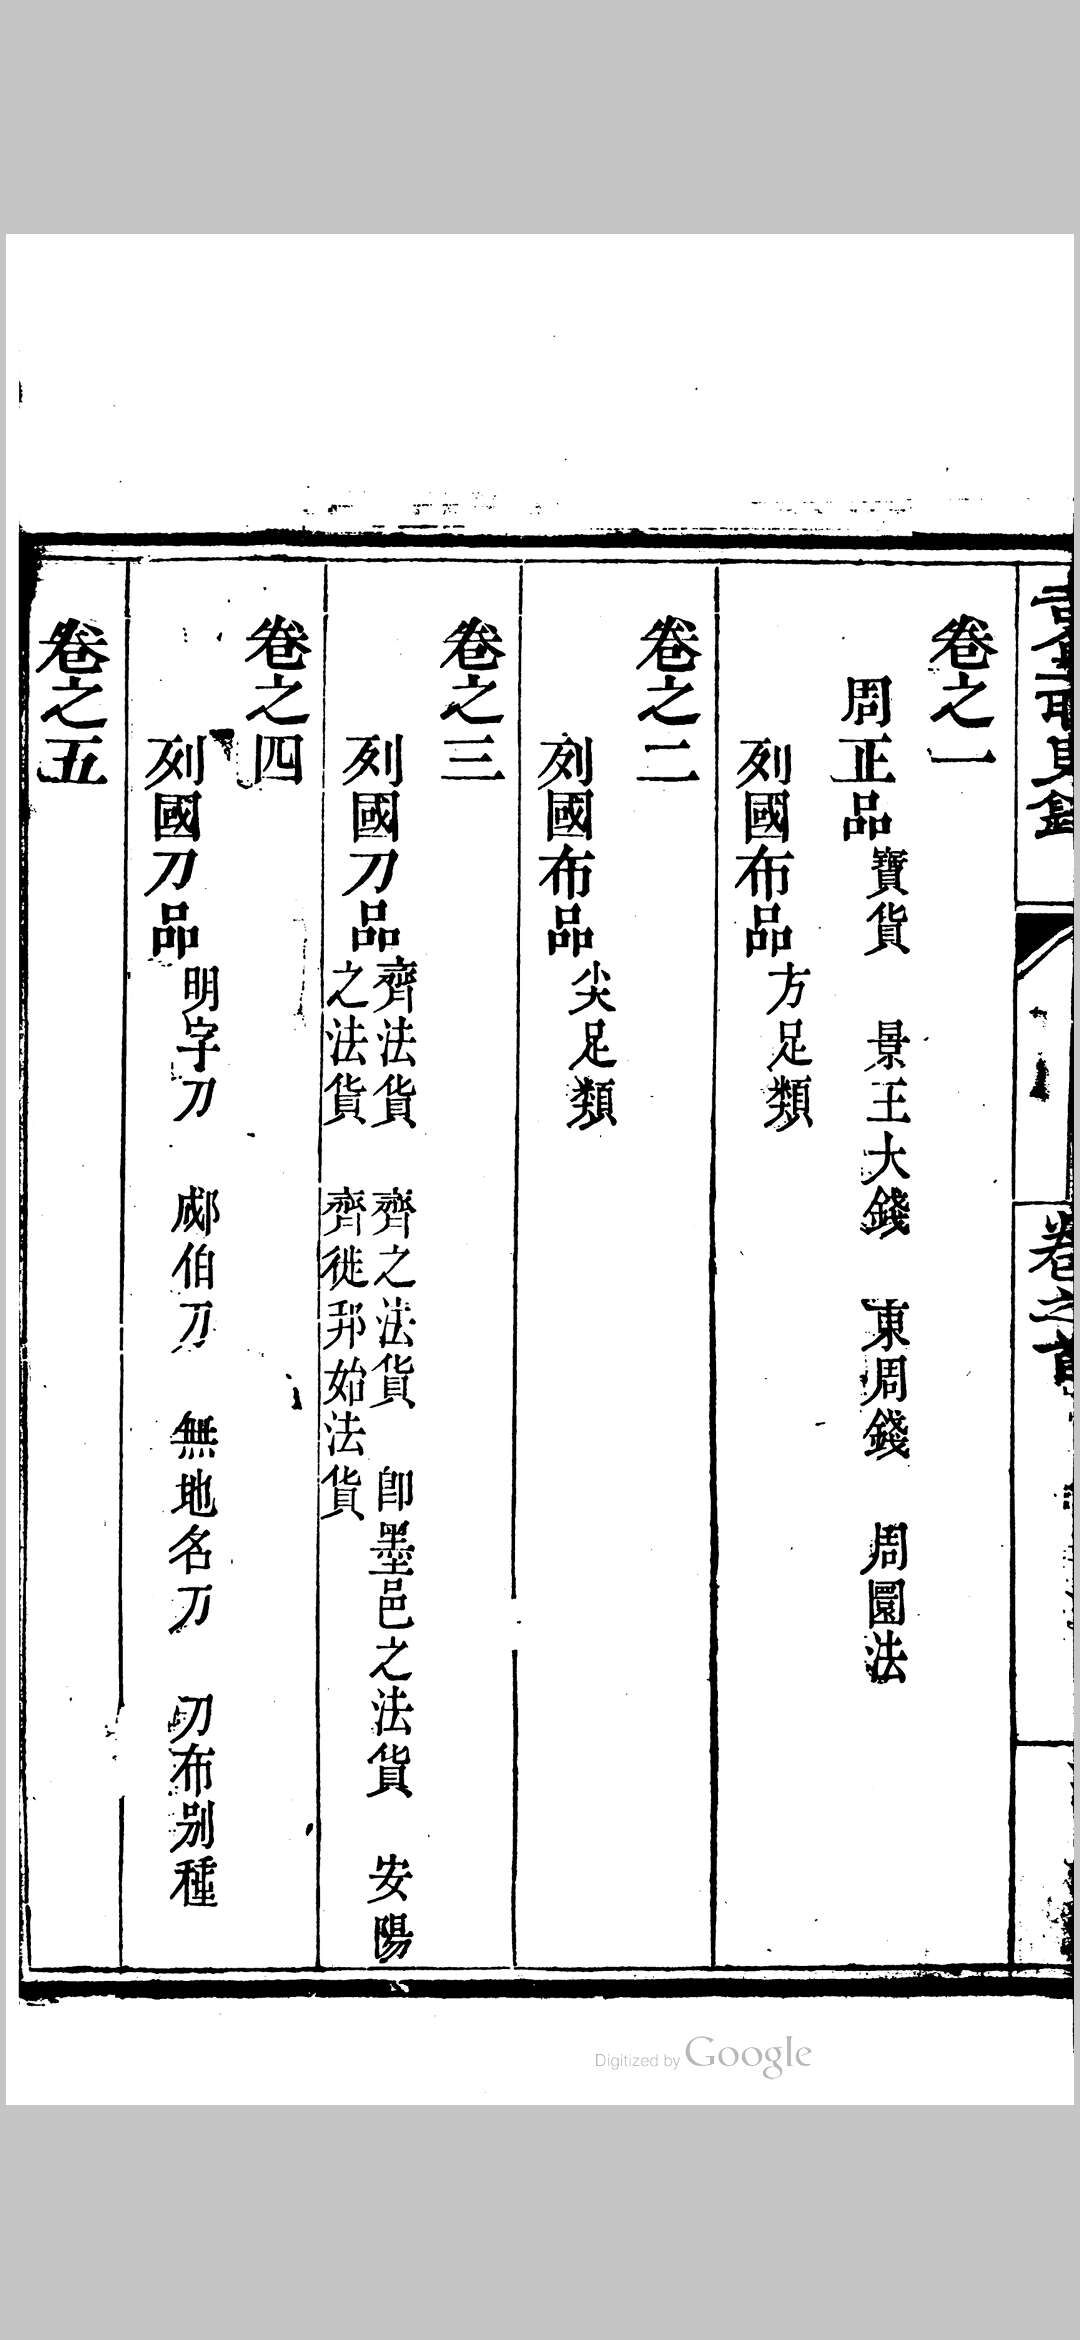 卷之首
卷之一
周正品 寶貨 景王大錢 東周錢 周圜法
列國布品 方足類
卷之二
列國布品 尖足類
卷之三
列國刀品 齊法貨 齊之法貨 卽墨邑之法貨 安陽
之法貨 齊徙邦始法貨
卷之四
列國刀品 明字刀 郕伯刀 無地名刀 刀布别種
卷之五
Digitized by Google